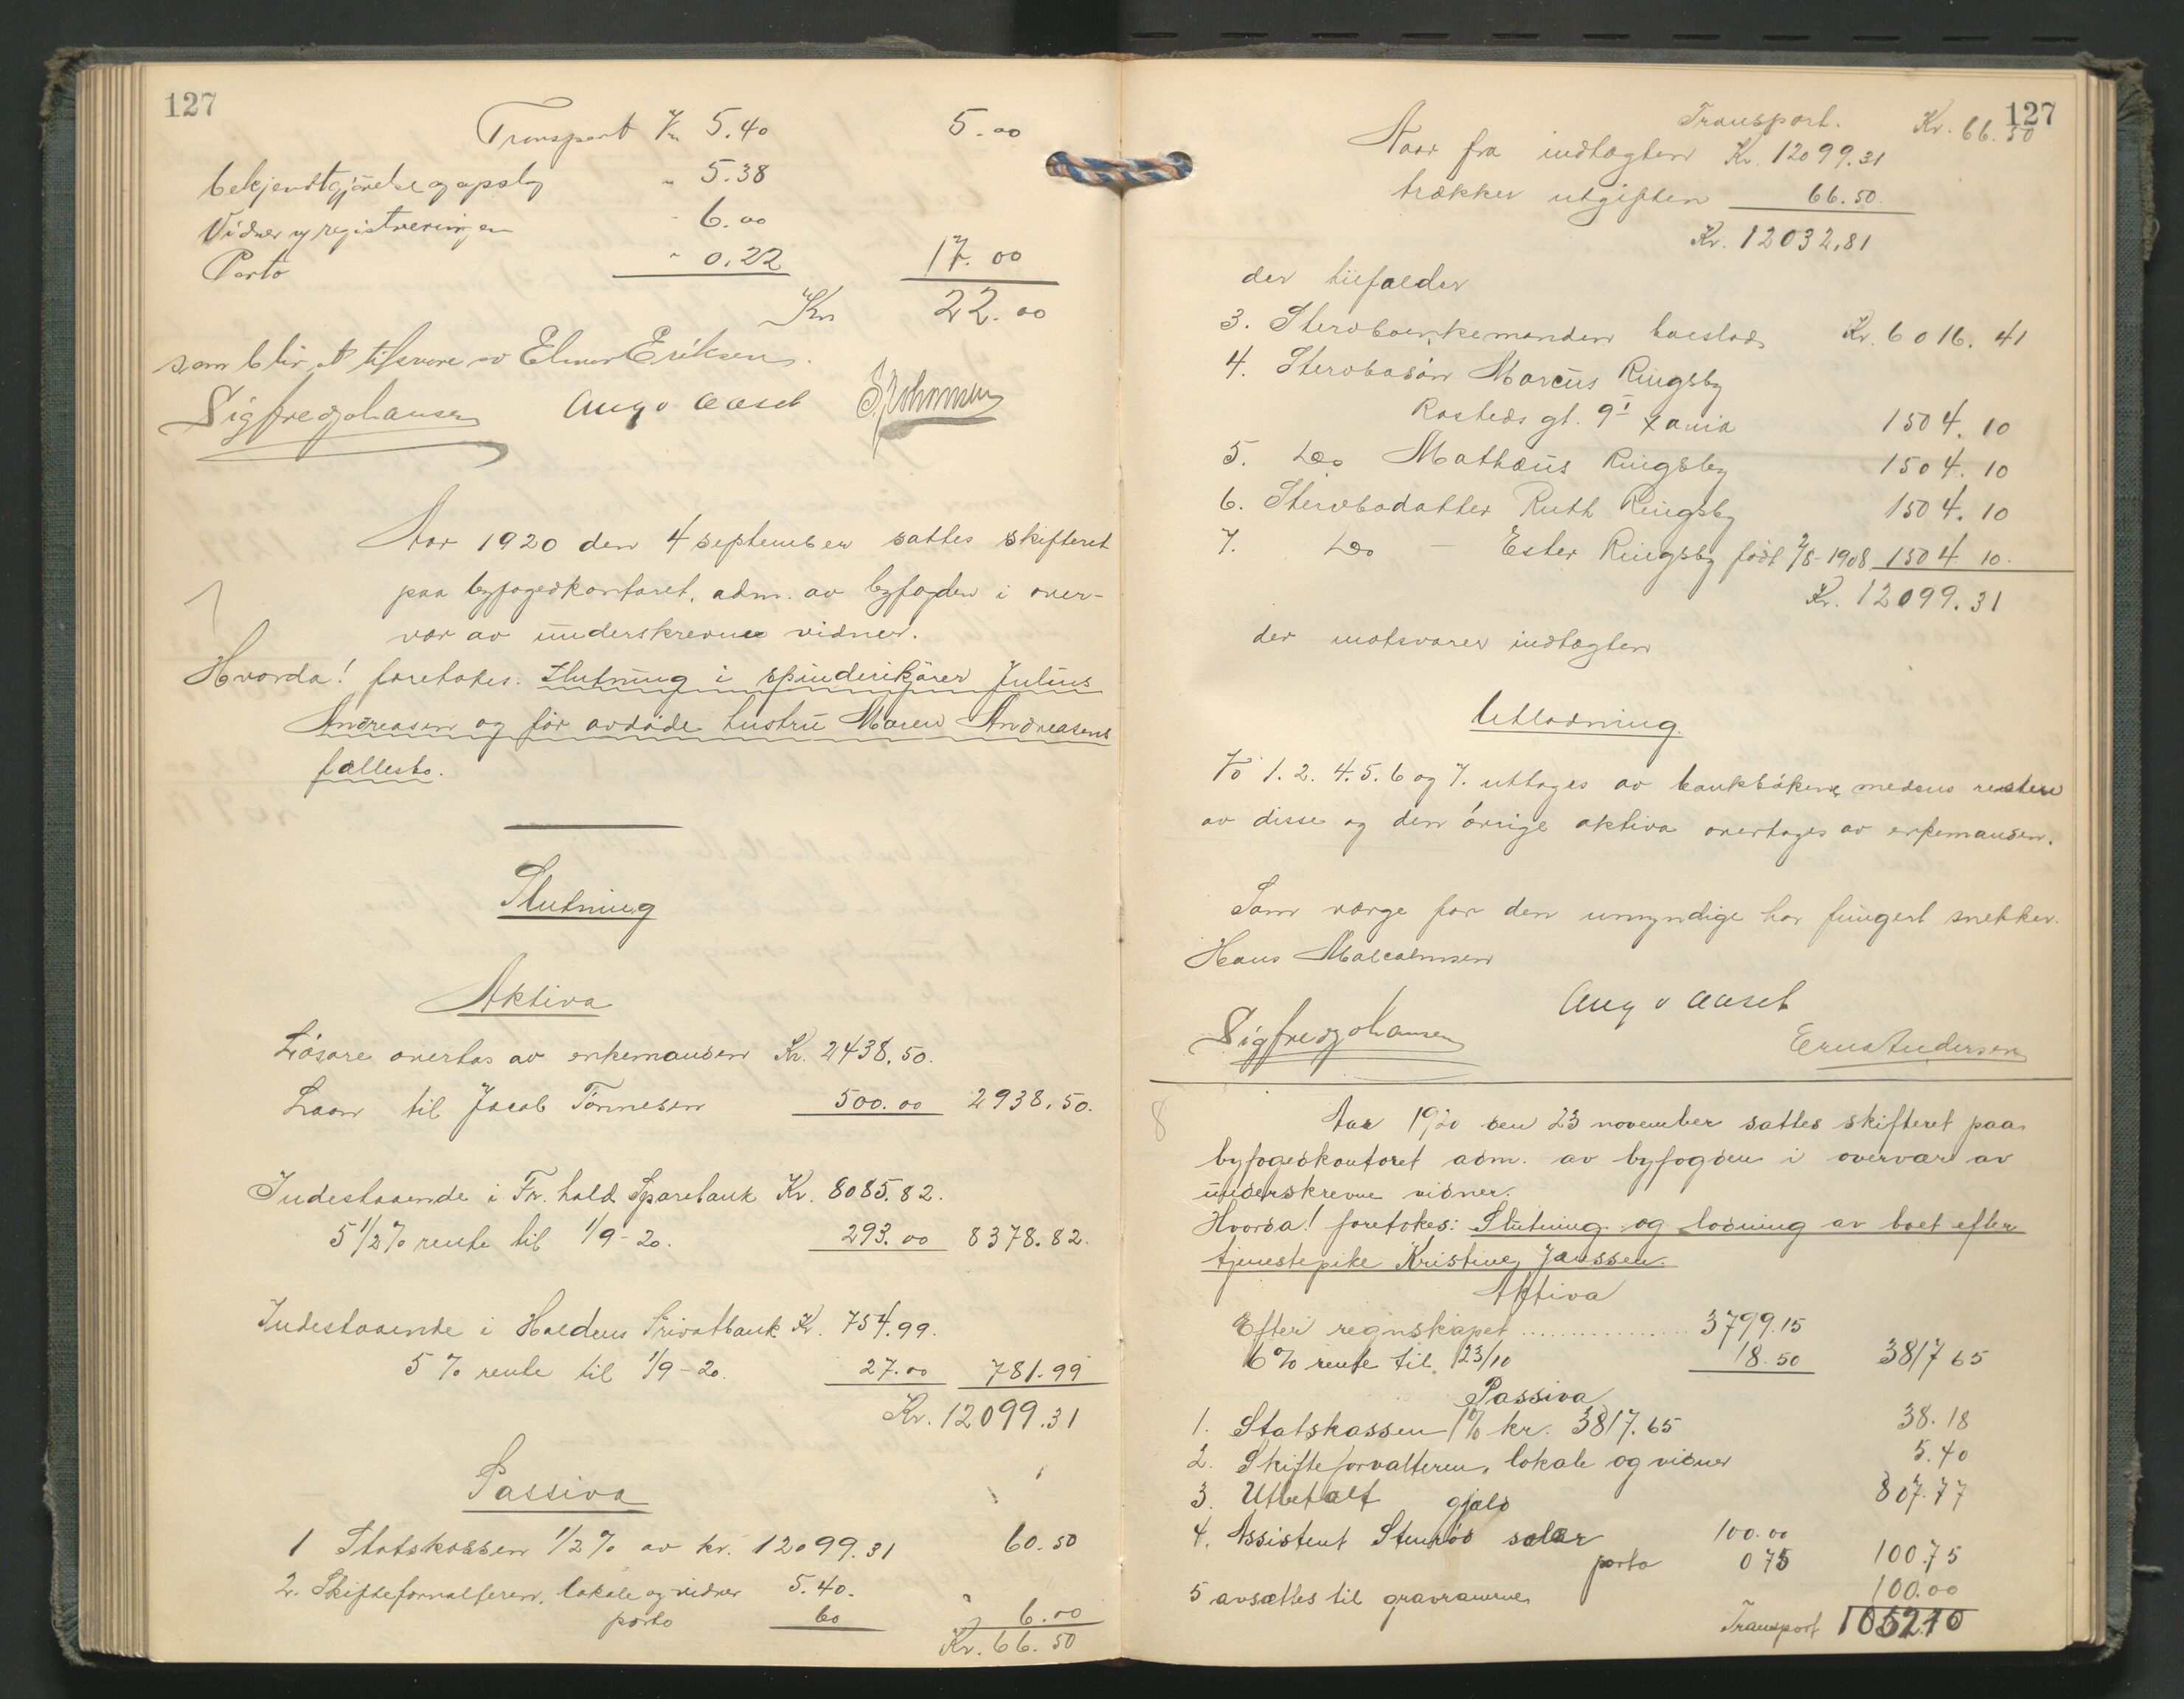 127
Transport Kr 5.40 5.00
bekjendtgjørelse og opslag " 5.38
Vidner v registreringen " 6.00
Porto " 0.22 17.00
Kr 22.00
som blir at tilsvare av Elmer Eriksen.
Sigfred Johansen Aug v Aasel S. Johnnsen
Aar 1920 den 4 september sattes skifteret
paa byfogedkontoret, adm. av byfogden i over-
vær av underskrevne vidner.
Hvorda! foretokes: Slutning i spinderikjører Julius
Andreasen og før avdøde hustru Maren Andreasens
fællesbo.
Slutning
Aktiva
Løsøre overtas av enkemanden Kr. 2438,50.
Laan til Jacob Tønnesen 500.00 2938,50.
Indestaaende i Fr.hald Sparebank Kr. 8085.82.
5 1/2 % rente til 1/9-20. 293.00 8378.82.
Indestaaende i Haldens Privatbank Kr. 754.99.
5 % rente til 1/9-20. 27.00 781.99
Kr. 12099.31
Passiva
1 Statskassen 1/2 % av kr. 12099.31 60.50
2. Skifteforvalteren, lokale og vidner 5.40.
porto 60 6.00
Kr. 66.50
127
Transport. Kr. 66.50
Naar fra indtægten Kr. 12099.31
trækkes utgiften 66.50.
Kr. 12032,81
der tilfalder
3. Stervboenkemanden boeslod Kr. 6016.41
4. Stervbosøn Marcus Ringsby
Rosteds gt. 9 I Xania 1504.10
5. Do Mathæus Ringsby 1504.10
6. Stervbodatter Ruth Ringsby 1504.10
7. Do — Ester Ringsby født 2/8-1908 1504.10.
Kr. 12099.31
der motsvarer indtægten
Utlodning.
Po 1. 2. 4. 5. 6 og 7. uttages av bankbøkene, medens resten
av disse og den øvrige aktiva overtages av enkemanden.
Som værge for den umyndige har fungert snekker
Hans Malcolmsen
Aug v Aasel
Sigfred Johansen Erna Andersen
8
Aar 1920 den 23 november sattes skifteret paa
byfogedkontoret adm. av byfogden i overvær av
underskrevne vidner.
Hvorda! foretokes: Slutning og lodning av boet efter
tjenestepike Kristine Janssen.
Aktiva
Efter regnskapet ................ 3799.15
6 % rente til 23/10 18.50 3817 65
Passiva
1. Statskassen 1% kr. 3817.65 38.18
2. Skifteforvalteren, lokale og vidner 5.40
3. Utbetalt gjæld 807.77
4. Assistent Stenrød salær 100.00
porto 0 75 100.75
5 avsættes til gravramme 100.00
Transport 1052.10